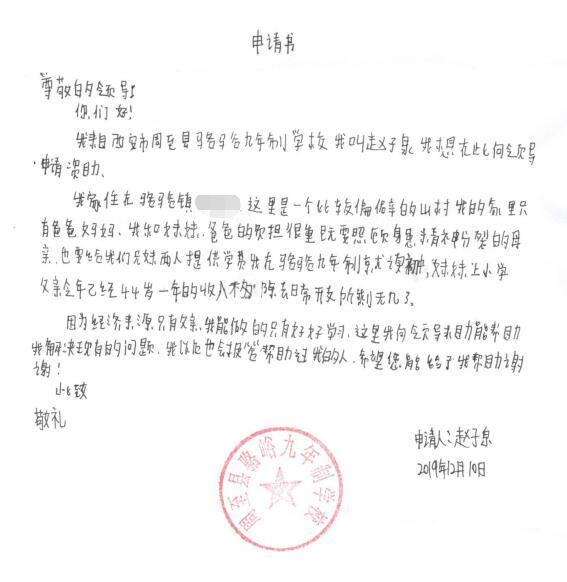 申请书
尊敬的领导:
你们好!
我来自西安市周至县骆峪九年制学校,我叫赵子泉,我想在此向领导
申请资助、
我家住在骆峪镇 这里是一个比较偏僻的山村 我的家里只
有爸爸妈妈、我和妹妹,爸爸的负担很重既要照顾身患精神分裂的母
亲,也要给我们兄妹两人提供学费我在骆峪九年制就读初中,妹妹上小学
父亲今年已经44岁一年的收入 除去日常开支所剩无几了。
因为经济来源只有父亲,我能做的只有好好学习、这里我向领导求助能帮助
我解决现有的问题、我以后也会报答帮助过我的人,希望您能给予我帮助谢
谢!
此致
敬礼
申请人:赵子泉
2019年12月10日
周至县骆峪九年制学校